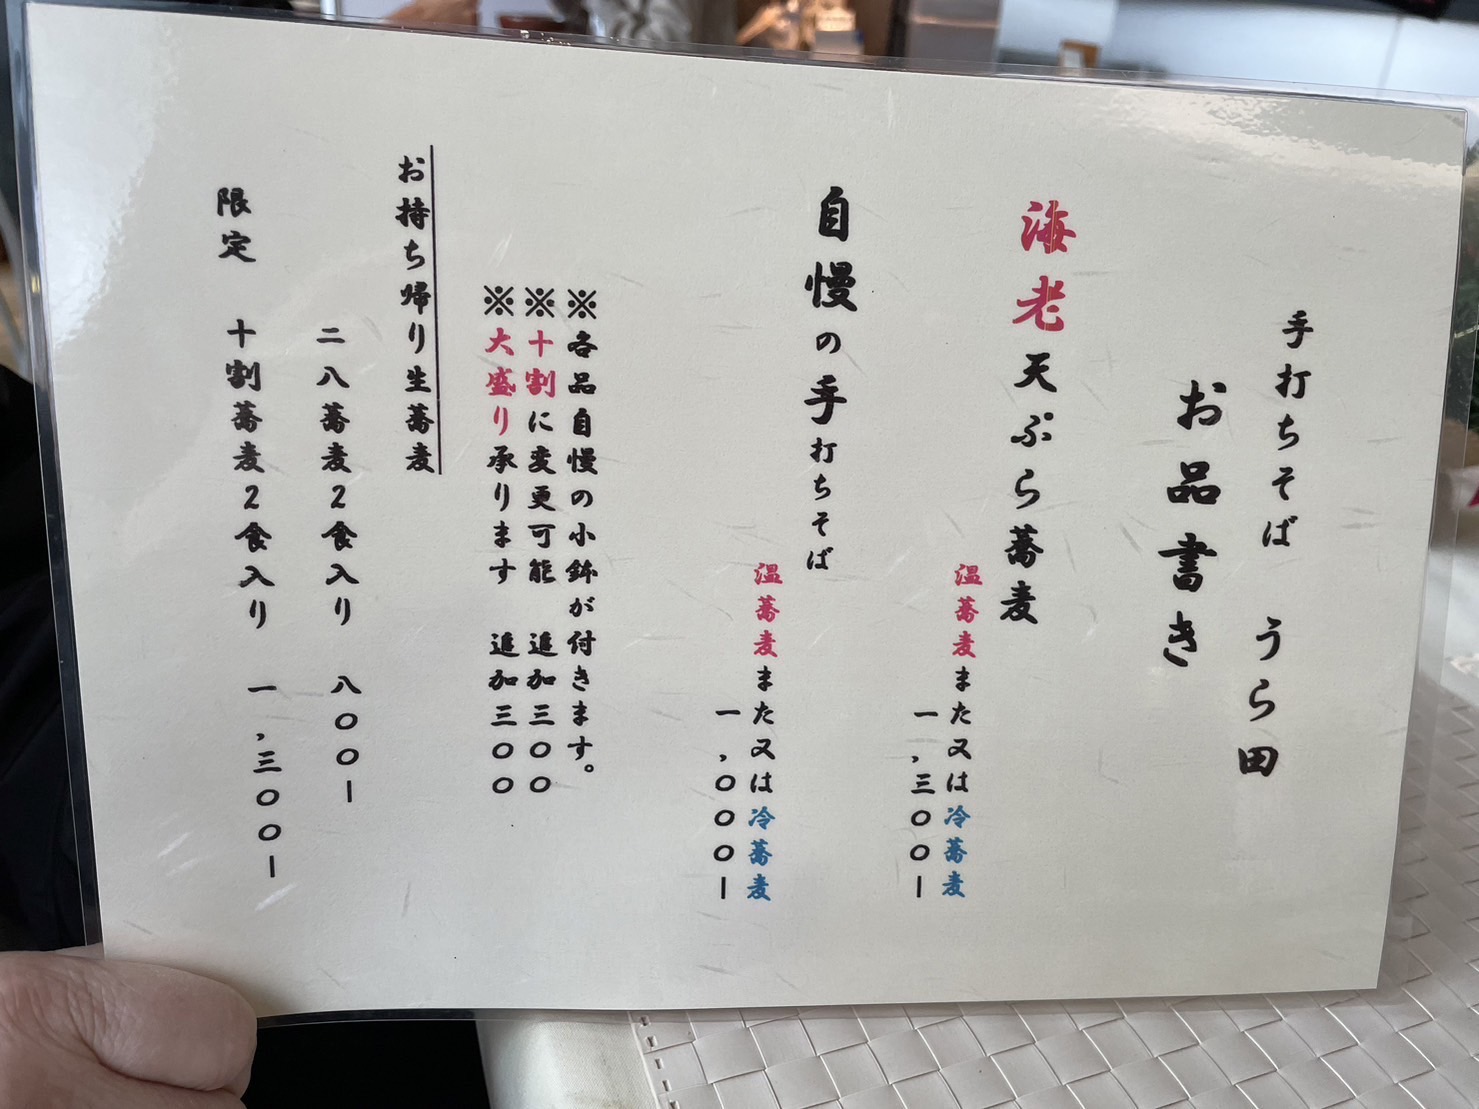 手打ちそば　うら田
お品書き
海老天ぷら蕎麦
温蕎麦また又は冷蕎麦
一,三〇〇ー
自慢の手打ちそば
温蕎麦また又は冷蕎麦
一,〇〇〇ー
※各品自慢の小鉢が付きます。
※十割に変更可能　追加三〇〇
※大盛り承ります　追加三〇〇
お持ち帰り生蕎麦
二八蕎麦２食入り　八〇〇ー
限定　十割蕎麦２食入り　一,三〇〇ー